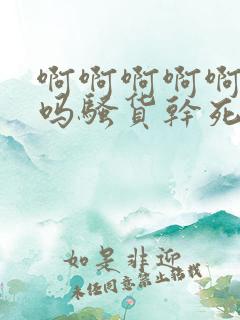 啊啊啊啊啊
吗骚货幹死
如是非迎
未经同意禁止转载